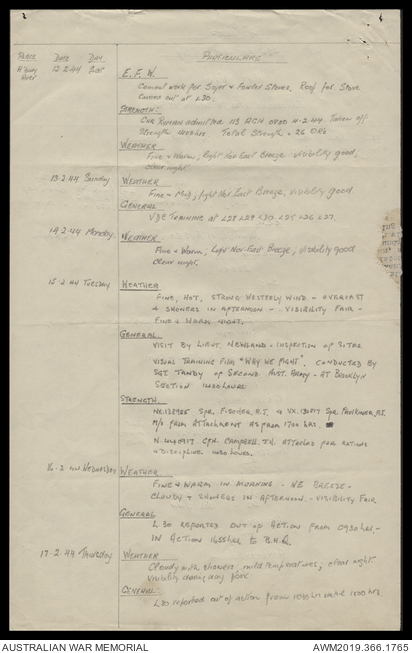 PLACE DATE DAY PARTICULARS
H'bury River 12.2.44 Sat E.F.W.
Cement work for Sager & Fowler Stoves. Roof for Stove
carried out at L30.
STRENGTH:
Cnr admitted 113 AGH 0800 11.2.44 Taken off
Strength Total Strength = 26 ORs
WEATHER
Fine & Warm, light Nor East Breeze visibility good,
clear night.
13.2.44 Sunday WEATHER
Fine & Mild, light Nor East Breeze, visibility good.
GENERAL
TRAINING at L28 L29 L30 L25 L26 L27.
14.2.44 Monday WEATHER
Fine & Warm, Light Nor-East Breeze, visibility good
clear night.
15.2.44 TUESDAY WEATHER
FINE, HOT, STRONG WESTERLY WIND - OVERCAST
& SHOWERS IN AFTERNOON - VISIBILITY FAIR -
FINE & WARM NIGHT.
GENERAL
VISIT BY LIEUT. NEWLAND - INSPECTION OF SITES
VISUAL TRAINING FILM "WHY WE FIGHT". CONDUCTED BY
SGT. TANDY OF SECOND AUST. ARMY - AT BROOKLYN
SECTION 1400 HOURS.
STRENGTH.
SPR. FISCHER, R.T. & VX.130817 SPR. FAULKNER, R.J.
M/O FROM ATTACHMENT AS FROM 1700 HRS.
CPR. CAMPBELL, J.N. ATTACHED FOR RATIONS
& DISCIPLINE HOURS.
16.2.44 WEDNESDAY WEATHER
FINE & WARM IN MORNING - NE BREEZE -
CLOUDY & SHOWERS IN AFTERNOON - VISIBILITY FAIR
GENERAL
L.30 REPORTED OUT OF ACTION FROM 0930 hrs -
IN ACTION 1655 hrs to B.H.Q.
17.2.44 THURSDAY WEATHER
Cloudy with showers, mild temperatures, clear night.
visibility during day poor.
GENERAL
L30 reported out of action from until 1500 hrs.
AUSTRALIAN WAR MEMORIAL
AWM2019.366.1765